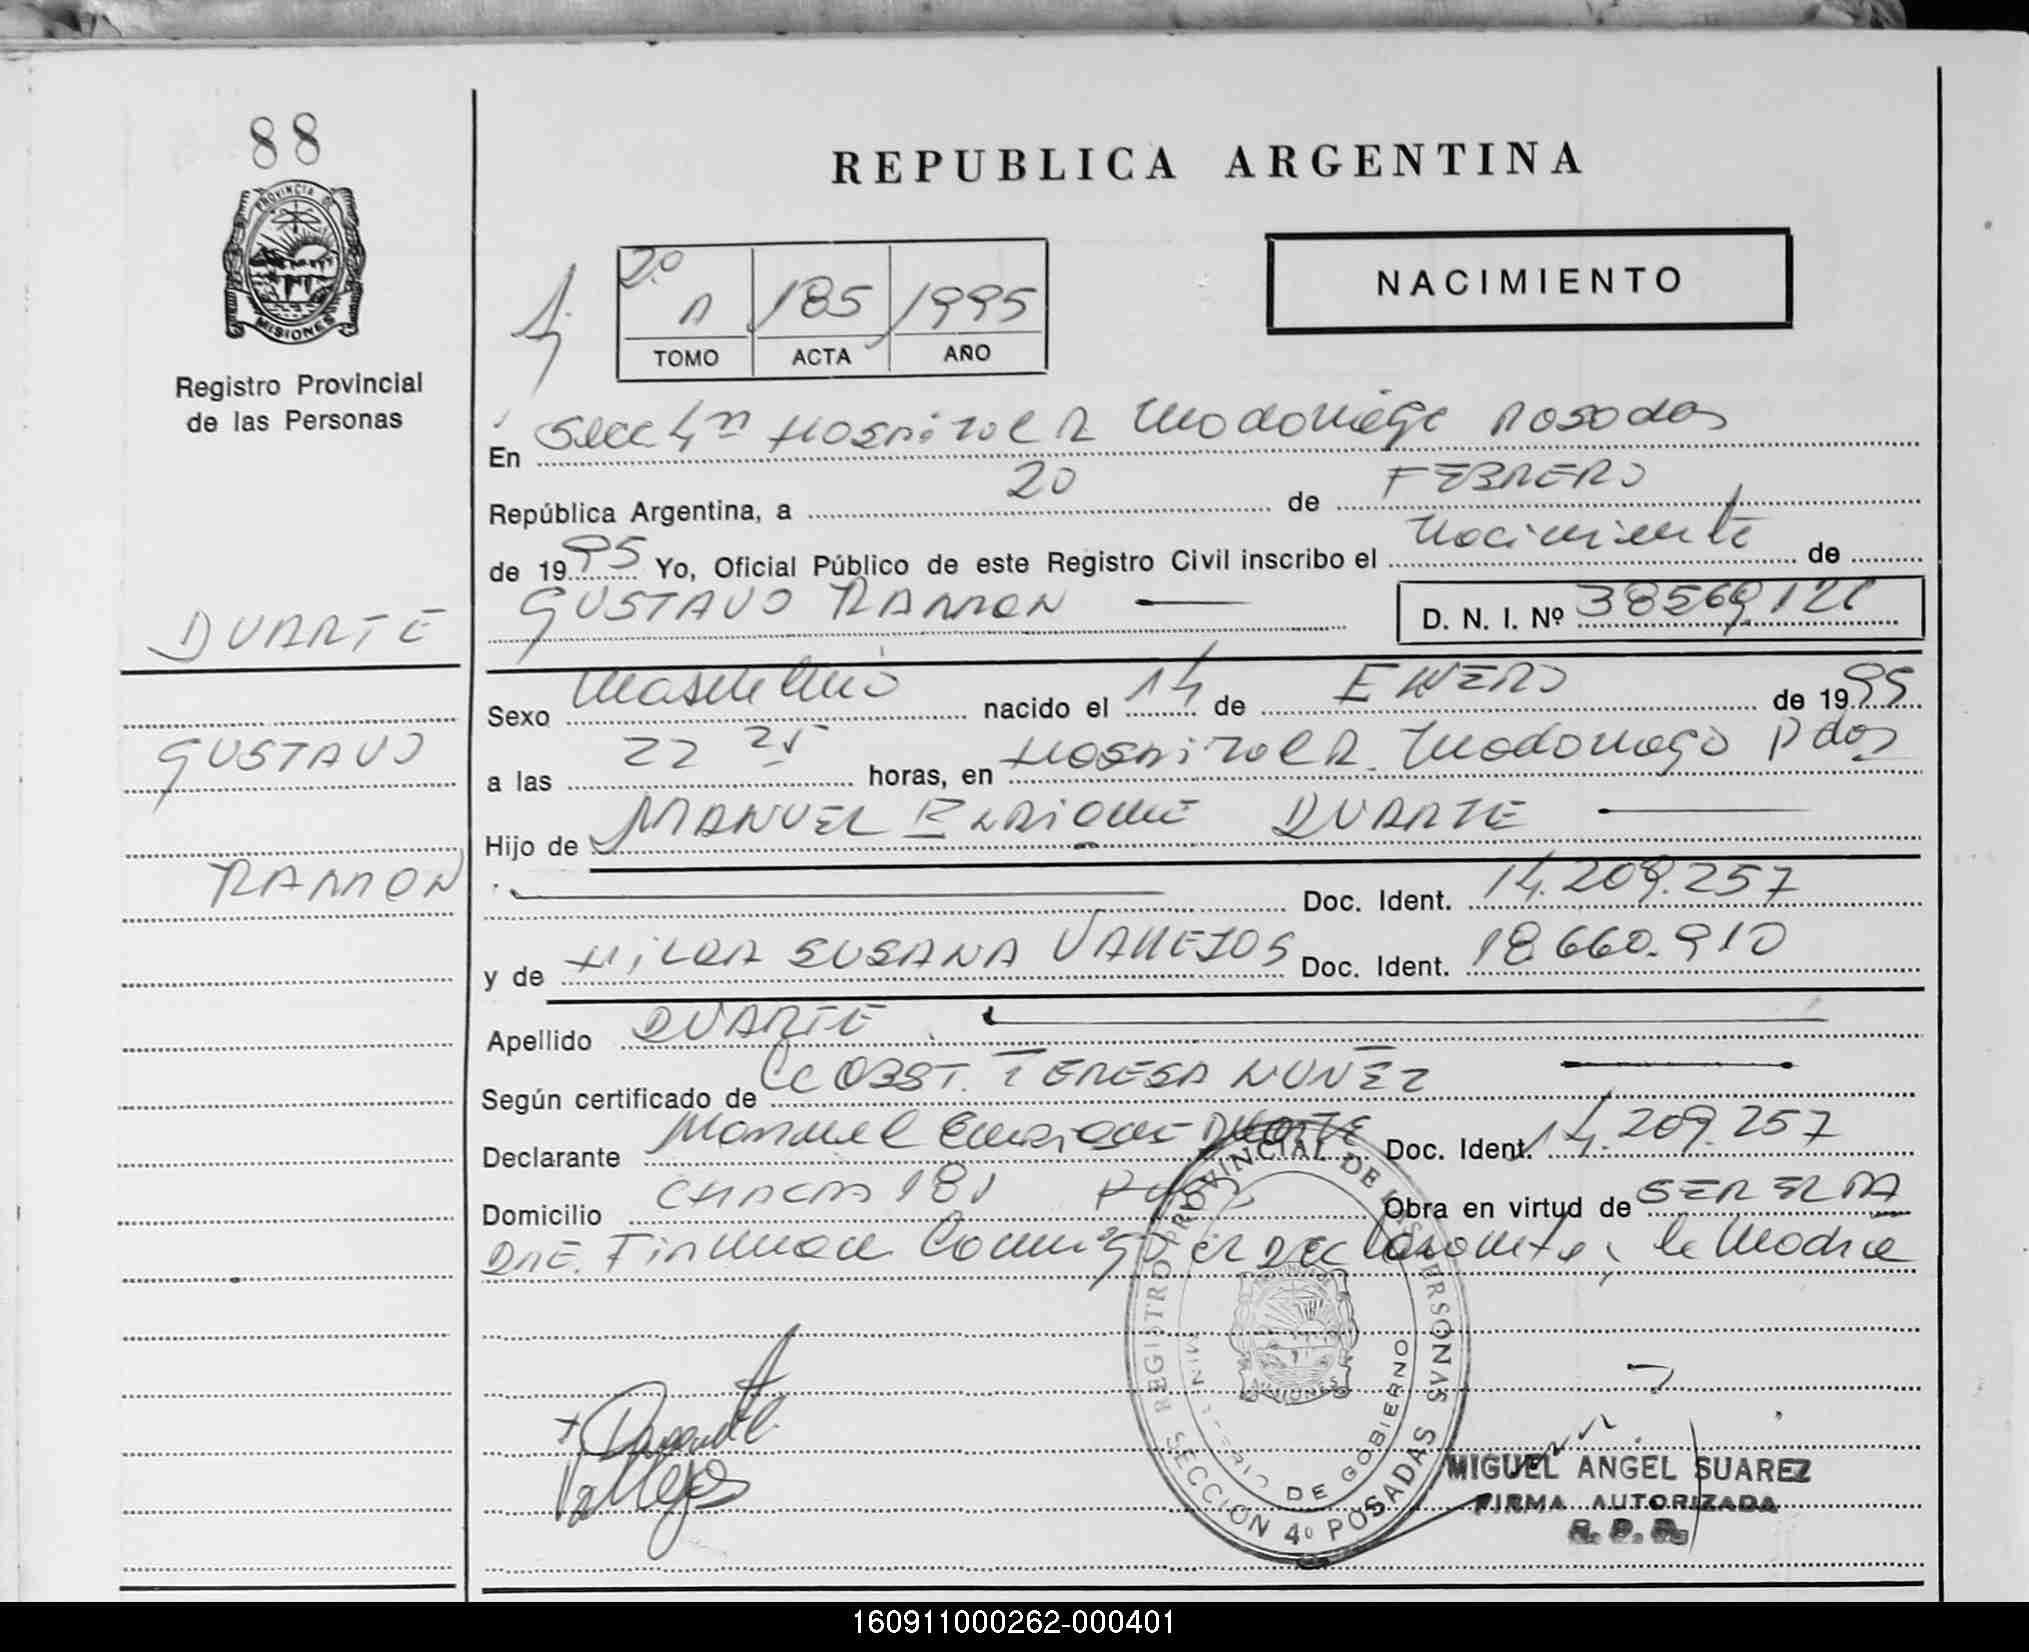 88
PROVINCIA DE
MISIONES
Registro Provincial
de las Personas
REPUBLICA ARGENTINA
NACIMIENTO
2º A 185 1995
TOMO ACTA AÑO
En Secc 4ta Hospital R Madariaga Posadas
República Argentina, a 20 de FEBRERO
de 1995 Yo, Oficial Público de este Registro Civil inscribo el Nacimiento de
GUSTAVO RAMON D. N. I. Nº 38569.126
DUARTE
GUSTAVO
RAMON
Sexo Masculino nacido el 14 de ENERO de 1995
a las 22 25 horas, en Hospital R. Madariaga Pdas
Hijo de MANUEL ENRIQUE DUARTE
Doc. Ident. 14.209.257
y de HILDA SUSANA VALLEJOS Doc. Ident. 18.660.910
Apellido DUARTE
Según certificado de Lc OBST. TERESA NUÑEZ
Declarante Manuel Enrique DUARTE Doc. Ident. 14.209.257
Domicilio CHACRA 181 Pdas Obra en virtud de SER EL PA
DRE. Firman Conmigo el Declarante y la Madre
Duarte
Vallejos
REGISTRO PROVINCIAL DE LAS PERSONAS
MINISTERIO DE GOBIERNO
MISIONES
SECCION 4º POSADAS
MIGUEL ANGEL SUAREZ
FIRMA AUTORIZADA
R. P. P.
160911000262-000401